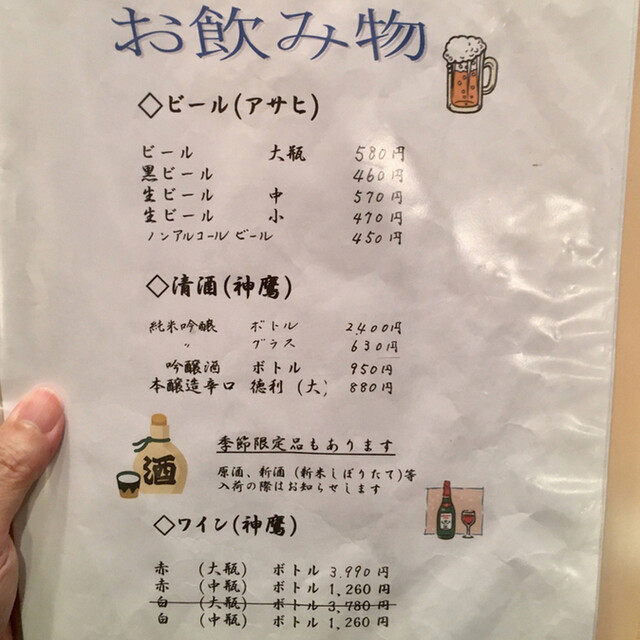 お飲み物
◇ビール(アサヒ)
ビール 大瓶 580円
黒ビール 460円
生ビール 中 570円
生ビール 小 470円
ノンアルコールビール 450円
◇清酒(神鷹)
純米吟醸 ボトル 2,400円
〃 グラス 630円
吟醸酒 ボトル 950円
本醸造辛口 徳利(大) 880円
酒
季節限定品もあります
原酒、新酒(新米しぼりたて)等
入荷の際はお知らせします
◇ワイン(神鷹)
赤 (大瓶) ボトル 3,990円
赤 (中瓶) ボトル 1,260円
白 (大瓶) ボトル 3,780円
白 (中瓶) ボトル 1,260円